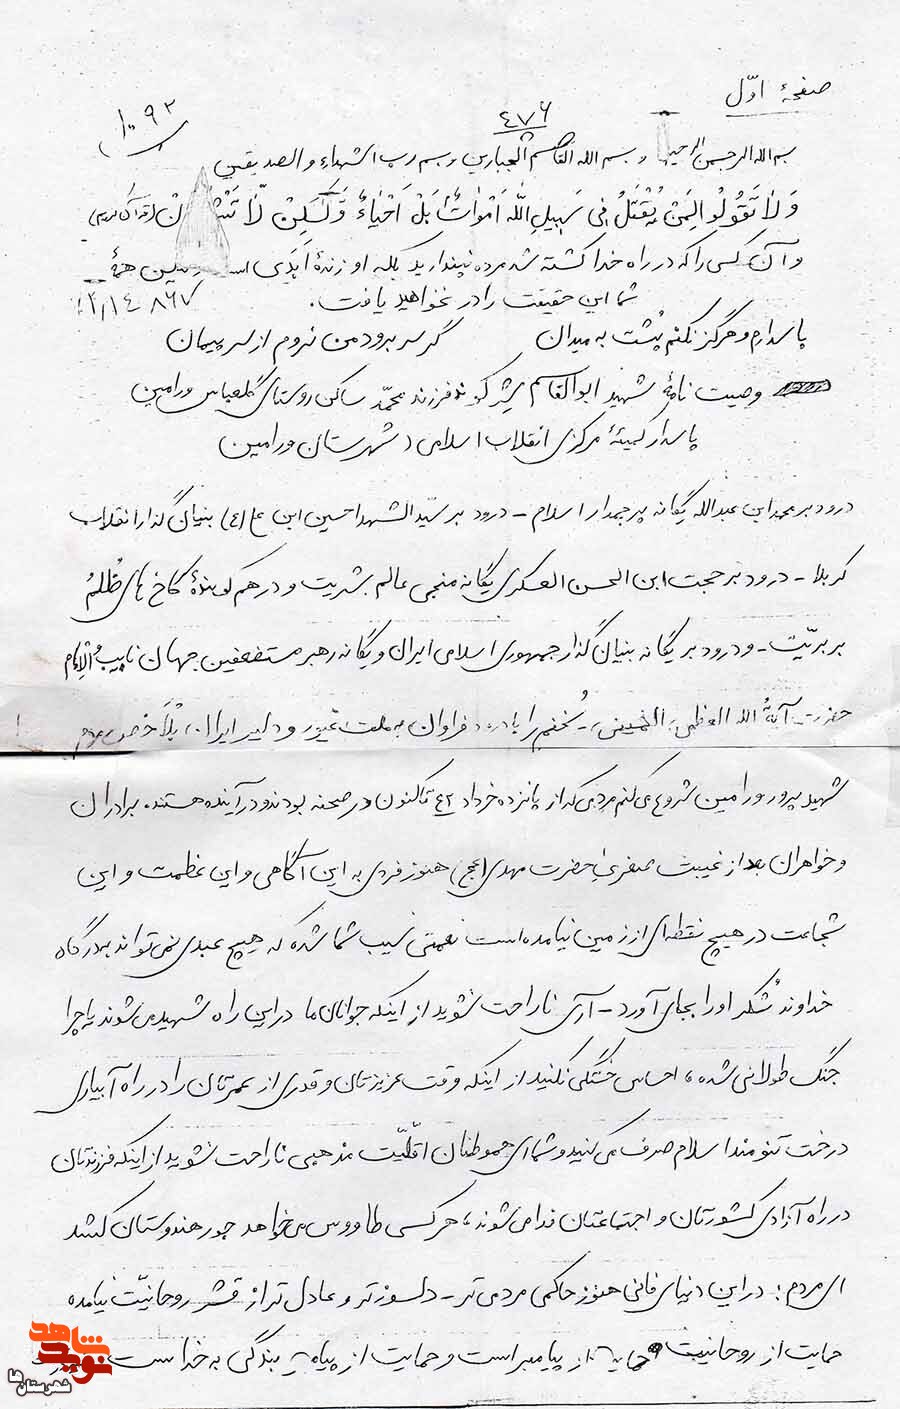 صفحهٔ اوّل
۱۰۹۲
۴۷۶
بسم الله الرحمن الرحیم و بسم الله القاصم الجبارین و بسم رب الشهداء و الصدیقین
وَ لاٰ تَقُولُوا لِمَنْ یُقْتَلُ فِی سَبِیلِ اللّٰه اَمْوٰاتٌ بَلْ اَحْیٰاءٌ وَ لٰکِنْ لاٰ (قرآن کریم)
و آن کسی را که در راه خدا کشته شد مرده نپندارید بلکه او زندهٔ ابدی است همهٔ
شما این حقیقت را در نخواهید یافت.
پاسدارم و هرگز نکنم پُشت به میدان گر سر برود من نروم از سر پیمان
وصیت نامهٔ شهید ابوالقاسم شیرکوند فرزند محمّد ساکن روستای گلعباس ورامین
پاسدار کمیتهٔ مرکزی انقلاب اسلامی شهرستان ورامین
درود بر محمد ابن عبدالله یگانه پرچمدار اسلام - درود بر سیّد الشهدا حسین ابن علی (ع) بنیان گذار انقلاب
کربلا - درود بر حجت ابن الحسن العسکری یگانه منجی عالم بشریت و درهم کوبندهٔ کاخ های ظُلمُ
بربریّت - و درود بر یگانه بنیان گذار جمهوری اسلامی ایران و یگانه رهبر مستضعفین جهان نایب الامام
حضرت آیةُ الله العظمی الخمینی - سُخنم را با درود فراوان به ملت غیور و دلیر ایران مردم
شهید پرور ورامین شروع می کنم مردمی که از پانزده خرداد ۴۲ تاکنون در صحنه بودند و در آینده هستند. برادران
و خواهران بعد از غیبت صغری حضرت مهدی (عج) هنوز فردی به این آگاهی و این عظمت و این
شجاعت در هیچ نقطه ای از زمین نیامده است نعمتی نسیب شما شده که هیچ عبدی نمی تواند بدرگاه
خداوند شُکر او را بجای آورد - آری ناراحت نشوید از اینکه جوانان ما در این راه شهید می شوند یا چرا
جنگ طولانی شده، احساس خستگی نکنید از اینکه وقت عزیزتان و قدری از عمرتان را در راه آبیاری
درخت تنومند اسلام صرف می کنید و شما ای هموطنان اقلّیّت مذهبی ناراحت نشوید از اینکه فرزندتان
در راه آزادی کشورتان و اجتماعتان فدا می شوند، هر کسی طاووس می خواهد جور هندوستان کشد
ای مردم: در این دنیای فانی هنوز حاکمی مردمی تر - دلسوزتر و عادل تر از قشر روحانیّت نیامده
حمایت از روحانیت حمایت از پیامبر است و حمایت از پیامبر بندگی به خداست
نوید شاهد
شهرستان ها